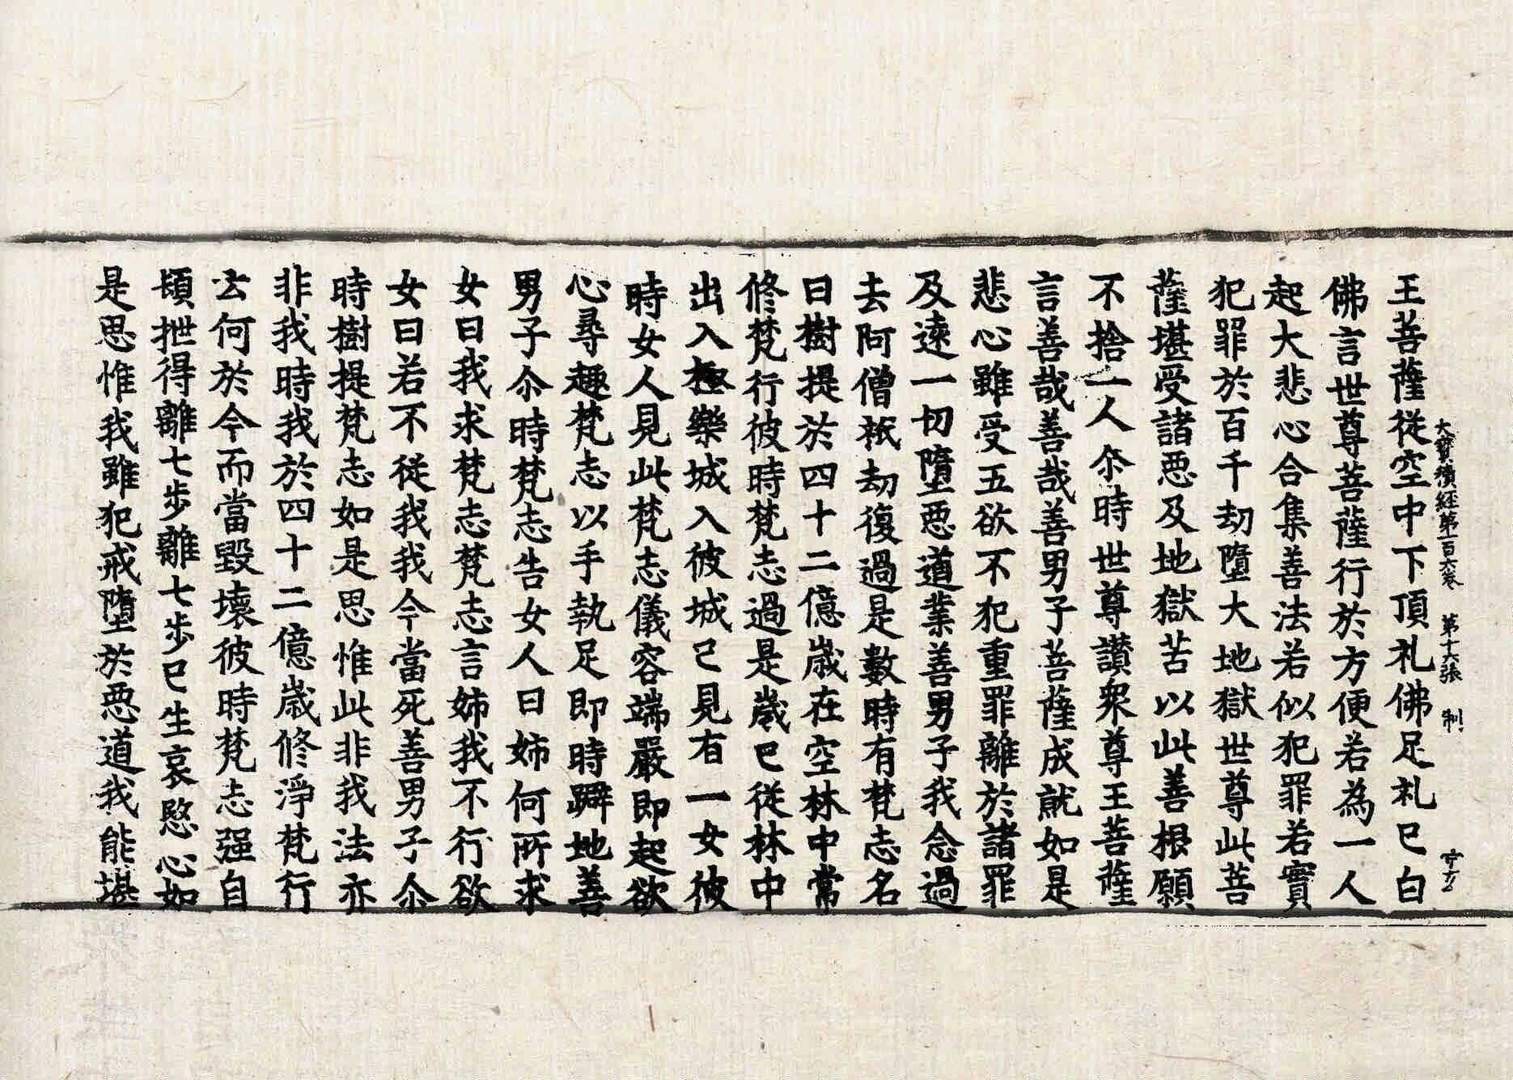 大寳積經第一百六卷　第十六張　制
王菩薩從空中下頂礼佛足礼已白
佛言世尊菩薩行於方便若為一人
起大悲心合集善法若似犯罪若實
犯罪於百千劫墮大地獄世尊此菩
薩堪受諸惡及地獄苦以此善根願
不捨一人尒時世尊讃衆尊王菩薩
言善哉善哉善男子菩薩成就如是
悲心雖受五欲不犯重罪離於諸罪
及遠一切墮惡道業善男子我念過
去阿僧祇劫復過是數時有梵志名
曰樹提於四十二億歲在空林中常
修梵行彼時梵志過是歲已從林中
出入極樂城入彼城已見有一女彼
時女人見此梵志儀容端嚴即起欲
心尋趣梵志以手執足即時躃地善
男子尒時梵志告女人曰姊何所求
女曰我求梵志梵志言姊我不行欲
女曰若不從我我今當死善男子尒
時樹提梵志如是思惟此非我法亦
非我時我於四十二億歲修淨梵行
云何於今而當毀壞彼時梵志强自
頓抴得離七步離七步已生哀愍心如
是思惟我雖犯戒墮於惡道我能堪